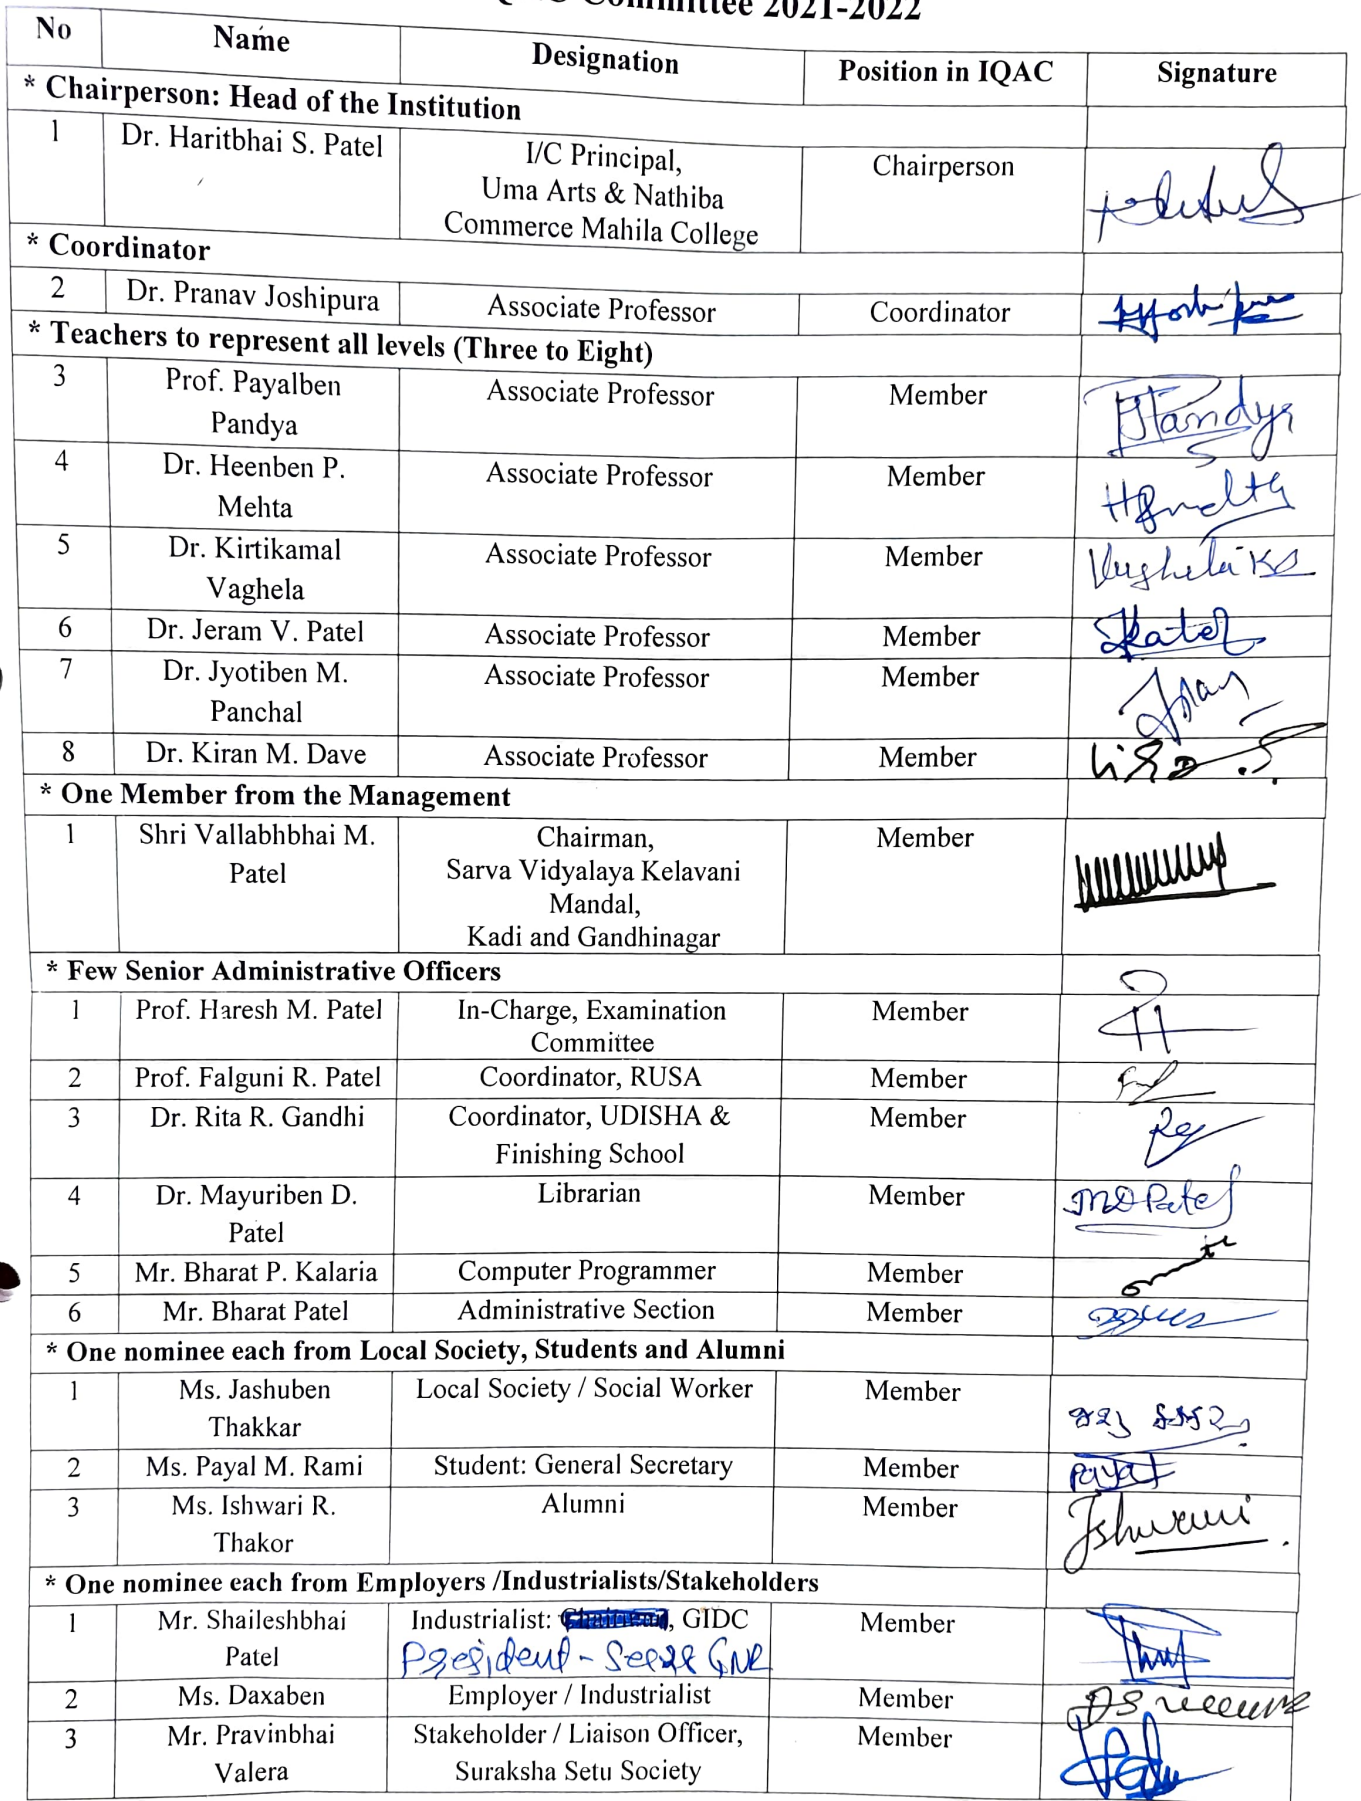 Committee 2021-2022
No Name Designation Position in IQAC Signature
* Chairperson: Head of the Institution
1 Dr. Haritbhai S. Patel I/C Principal, Chairperson
Uma Arts & Nathiba
Commerce Mahila College
* Coordinator
2 Dr. Pranav Joshipura Associate Professor Coordinator
* Teachers to represent all levels (Three to Eight)
3 Prof. Payalben Associate Professor Member
Pandya
4 Dr. Heenben P. Associate Professor Member
Mehta
5 Dr. Kirtikamal Associate Professor Member
Vaghela
6 Dr. Jeram V. Patel Associate Professor Member
7 Dr. Jyotiben M. Associate Professor Member
Panchal
8 Dr. Kiran M. Dave Associate Professor Member
* One Member from the Management
1 Shri Vallabhbhai M. Chairman, Member
Patel Sarva Vidyalaya Kelavani
Mandal,
Kadi and Gandhinagar
* Few Senior Administrative Officers
1 Prof. Haresh M. Patel In-Charge, Examination Member
Committee
2 Prof. Falguni R. Patel Coordinator, RUSA Member
3 Dr. Rita R. Gandhi Coordinator, UDISHA & Member
Finishing School
4 Dr. Mayuriben D. Librarian Member MDPatel
Patel
5 Mr. Bharat P. Kalaria Computer Programmer Member
6 Mr. Bharat Patel Administrative Section Member
* One nominee each from Local Society, Students and Alumni
1 Ms. Jashuben Local Society / Social Worker Member
Thakkar
2 Ms. Payal M. Rami Student: General Secretary Member Payal
3 Ms. Ishwari R. Alumni Member Ishwari
Thakor
* One nominee each from Employers /Industrialists/Stakeholders
1 Mr. Shaileshbhai Industrialist: , GIDC Member
Patel President -
2 Ms. Daxaben Employer / Industrialist Member
3 Mr. Pravinbhai Stakeholder / Liaison Officer, Member
Valera Suraksha Setu Society